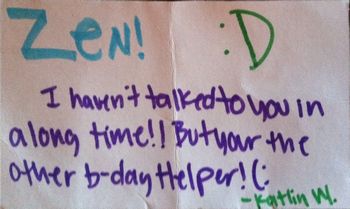 Zen! :D
I haven't talked to you in
a long time!! But your the
other b-day Helper! (:
-Katlin W.